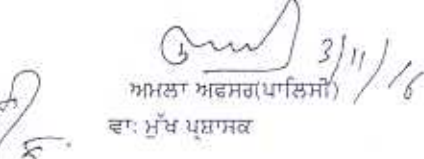 3/11/16
ਅਮਲਾ ਅਫਸਰ(ਪਾਲਿਸੀ)
ਵਾ: ਮੁੱਖ ਪ੍ਰਸ਼ਾਸਕ